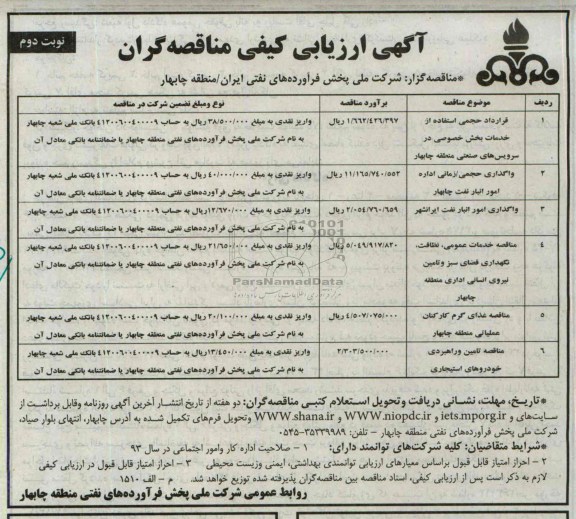 نوبت دوم
آگهی ارزیابی کیفی مناقصه‌گران
*مناقصه‌گزار: شرکت ملی پخش فرآورده‌های نفتی ایران/منطقه چابهار
ردیف موضوع مناقصه برآورد مناقصه نوع ومبلغ تضمین شرکت در مناقصه
۱ قرارداد حجمی استفاده از ۱/۶۶۲/۴۲۶/۳۹۷ ریال واریز نقدی به مبلغ ۳۸/۵۰۰/۰۰۰ ریال به حساب ۴۱۲۰۰۶۰۰۴۰۰۰۰۹ بانک ملی شعبه چابهار
خدمات بخش خصوصی در به نام شرکت ملی پخش فرآورده‌های نفتی منطقه چابهار یا ضمانتنامه بانکی معادل آن
سرویس‌های صنعتی منطقه چابهار
۲ واگذاری حجمی/زمانی اداره ۱۱/۱۶۵/۷۴۰/۵۵۲ ریال واریز نقدی به مبلغ ۴۰/۰۰۰/۰۰۰ ریال به حساب ۴۱۲۰۰۶۰۰۴۰۰۰۰۹ بانک ملی شعبه چابهار
امور انبار نفت چابهار به نام شرکت ملی پخش فرآورده‌های نفتی منطقه چابهار یا ضمانتنامه بانکی معادل آن
۳ واگذاری امور انبار نفت ایرانشهر ۲/۰۵۴/۷۶۰/۶۵۹ ریال واریز نقدی به مبلغ ۱۲/۶۷۰/۰۰۰ریال به حساب ۴۱۲۰۰۶۰۰۴۰۰۰۰۹ بانک ملی شعبه چابهار
به نام شرکت ملی پخش فرآورده‌های نفتی منطقه چابهار یا ضمانتنامه بانکی معادل آن
۴ مناقصه خدمات عمومی، نظافت، ۵/۰۴۹/۹۱۷/۸۲۰ ریال واریز نقدی به مبلغ ۲۱/۶۵۰/۰۰۰ ریال به حساب ۴۱۲۰۰۶۰۰۴۰۰۰۰۹ بانک ملی شعبه چابهار
نگهداری فضای سبز وتامین به نام شرکت ملی پخش فرآورده‌های نفتی منطقه چابهار یا ضمانتنامه بانکی معادل آن
نیروی انسانی اداری منطقه
چابهار
ParsNamadData
۵ مناقصه غذای گرم کارکنان ۴/۵۰۷/۰۷۵/۰۰۰ ریال واریز نقدی به مبلغ ۲۰/۱۰۰/۰۰۰ ریال به حساب ۴۱۲۰۰۶۰۰۴۰۰۰۰۹ بانک ملی شعبه چابهار
عملیاتی منطقه چابهار به نام شرکت ملی پخش فرآورده‌های نفتی منطقه چابهار یا ضمانتنامه بانکی معادل آن
۶ مناقصه تامین وراهبردی ۲/۳۰۳/۵۰۰/۰۰۰ واریز نقدی به مبلغ ۱۳/۴۵۰/۰۰۰ریال به حساب ۴۱۲۰۰۶۰۰۴۰۰۰۰۹ بانک ملی شعبه چابهار
خودروهای استیجاری به نام شرکت ملی پخش فرآورده‌های نفتی منطقه چابهار یا ضمانتنامه بانکی معادل آن
*تاریخ، مهلت، نشانی دریافت وتحویل استعلام کتبی مناقصه‌گران: دو هفته از تاریخ انتشار آخرین آگهی روزنامه وقابل برداشت از
سایت‌های iets.mporg.ir و WWW.niopdc.ir و WWW.shana.ir وتحویل فرم‌های تکمیل شده به آدرس چابهار، انتهای بلوار صیاد،
شرکت ملی پخش فرآورده‌های نفتی منطقه چابهار – تلفن: ۳۵۳۳۹۹۸۹-۰۵۴۵
*شرایط متقاضیان: کلیه شرکت‌های توانمند دارای: ۱ – صلاحیت اداره کار وامور اجتماعی در سال ۹۳
۲ – احراز امتیاز قابل قبول براساس معیارهای ارزیابی توانمندی بهداشتی، ایمنی وزیست محیطی ۳ – احراز امتیاز قابل قبول در ارزیابی کیفی
لازم به ذکر است پس از ارزیابی کیفی، اسناد مناقصه بین مناقصه‌گران پذیرفته شده توزیع خواهد شد. م – الف ۱۵۱۰
روابط عمومی شرکت ملی پخش فرآورده‌های نفتی منطقه چابهار